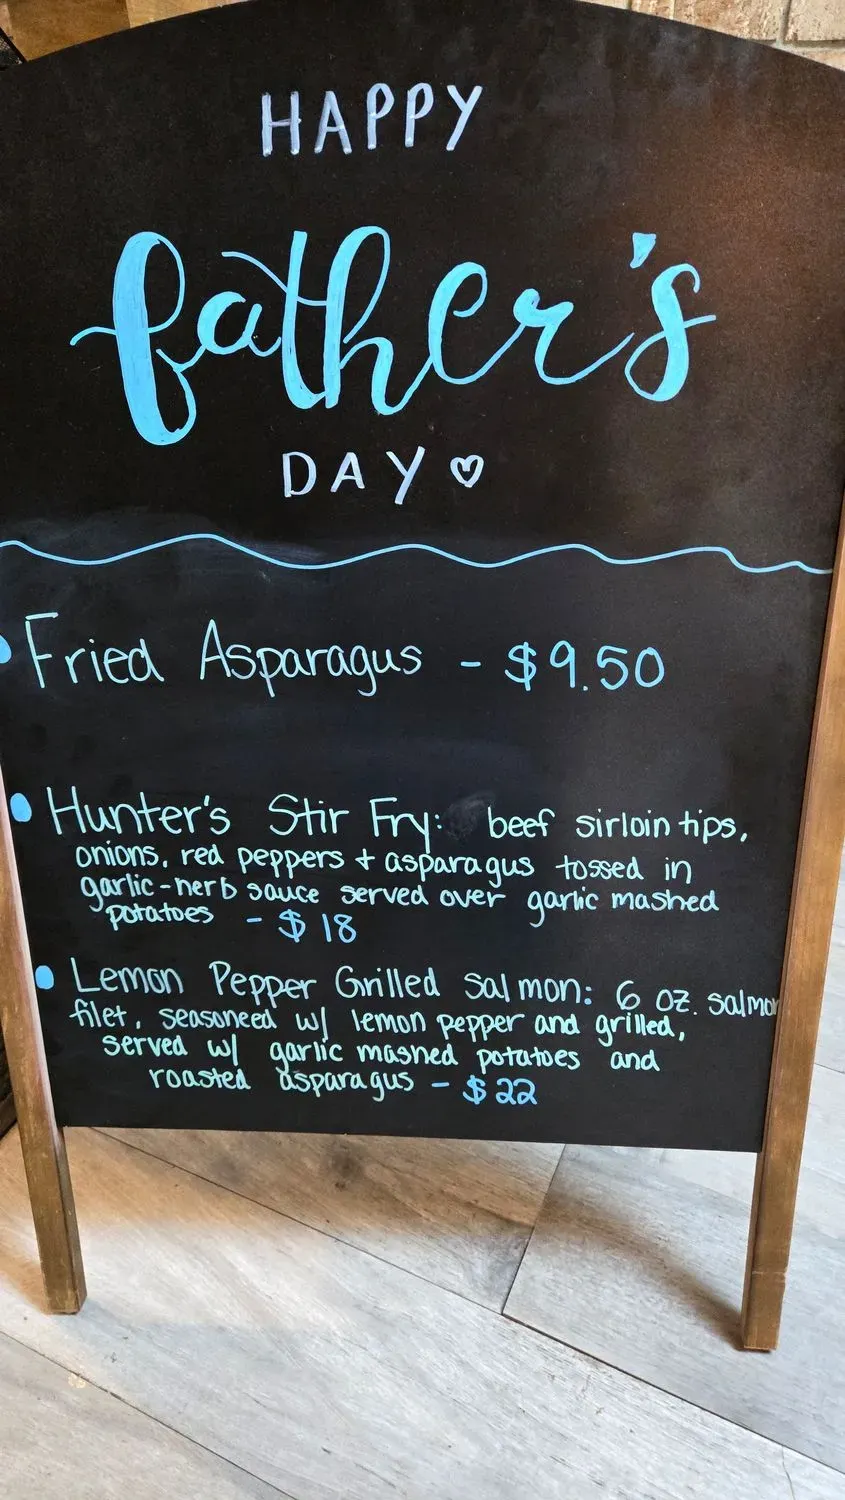 HAPPY
father's
DAY ♡
Fried Asparagus - $9.50
Hunter's Stir Fry: beef sirloin tips,
onions, red peppers + asparagus tossed in
garlic-herb sauce served over garlic mashed
potatoes - $18
Lemon Pepper Grilled Salmon: 6 oz. salmon
filet, seasoneed w/ lemon pepper and grilled,
served w/ garlic mashed potatoes and
roasted asparagus - $22